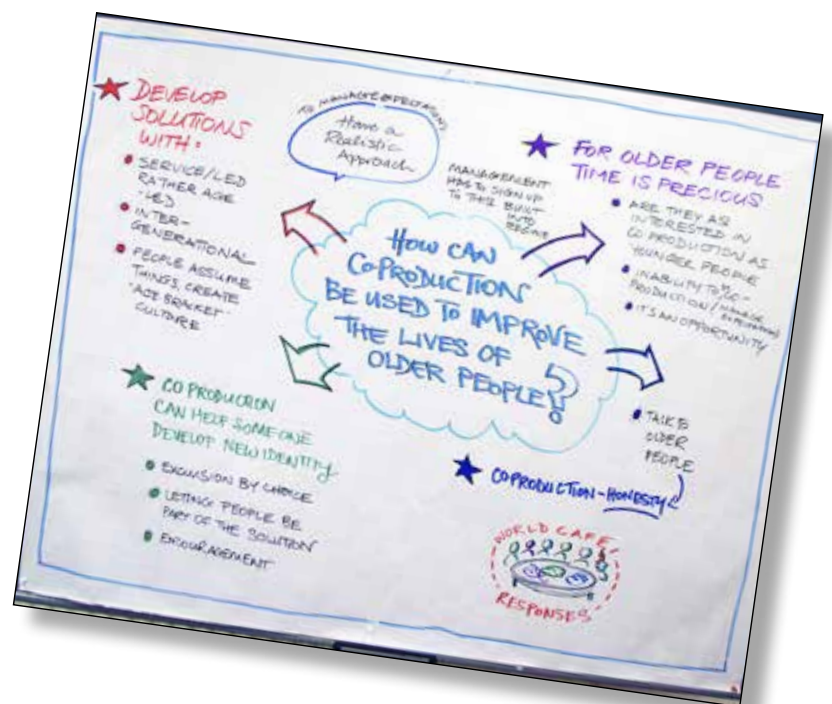 DEVELOP
SOLUTIONS
WITH:
SERVICE/LED
RATHER AGE
-LED
INTER-
GENERATIONAL
PEOPLE ASSUME
THINGS, CREATE
"AGE BRACKET"
CULTURE
TO MANAGE EXPECTATIONS
Have a
Realistic
Approach
MANAGEMENT
HAS TO SIGN UP
TO THIS BUILT
INTO
FOR OLDER PEOPLE
TIME IS PRECIOUS
ARE THEY AS
INTERESTED IN
CO PRODUCTION AS
YOUNGER PEOPLE
INABILITY TO CO-
PRODUCTION / MANAGE EXPECTATIONS
IT'S AN OPPORTUNITY
HOW CAN
COPRODUCTION
BE USED TO IMPROVE
THE LIVES OF
OLDER PEOPLE?
CO PRODUCTION
CAN HELP SOMEONE
DEVELOP NEW IDENTITY
EXCLUSION BY CHOICE
LETTING PEOPLE BE
PART OF THE SOLUTION
ENCOURAGEMENT
TALK TO
OLDER
PEOPLE
COPRODUCTION - HONESTY
WORLD CAFE
RESPONSES